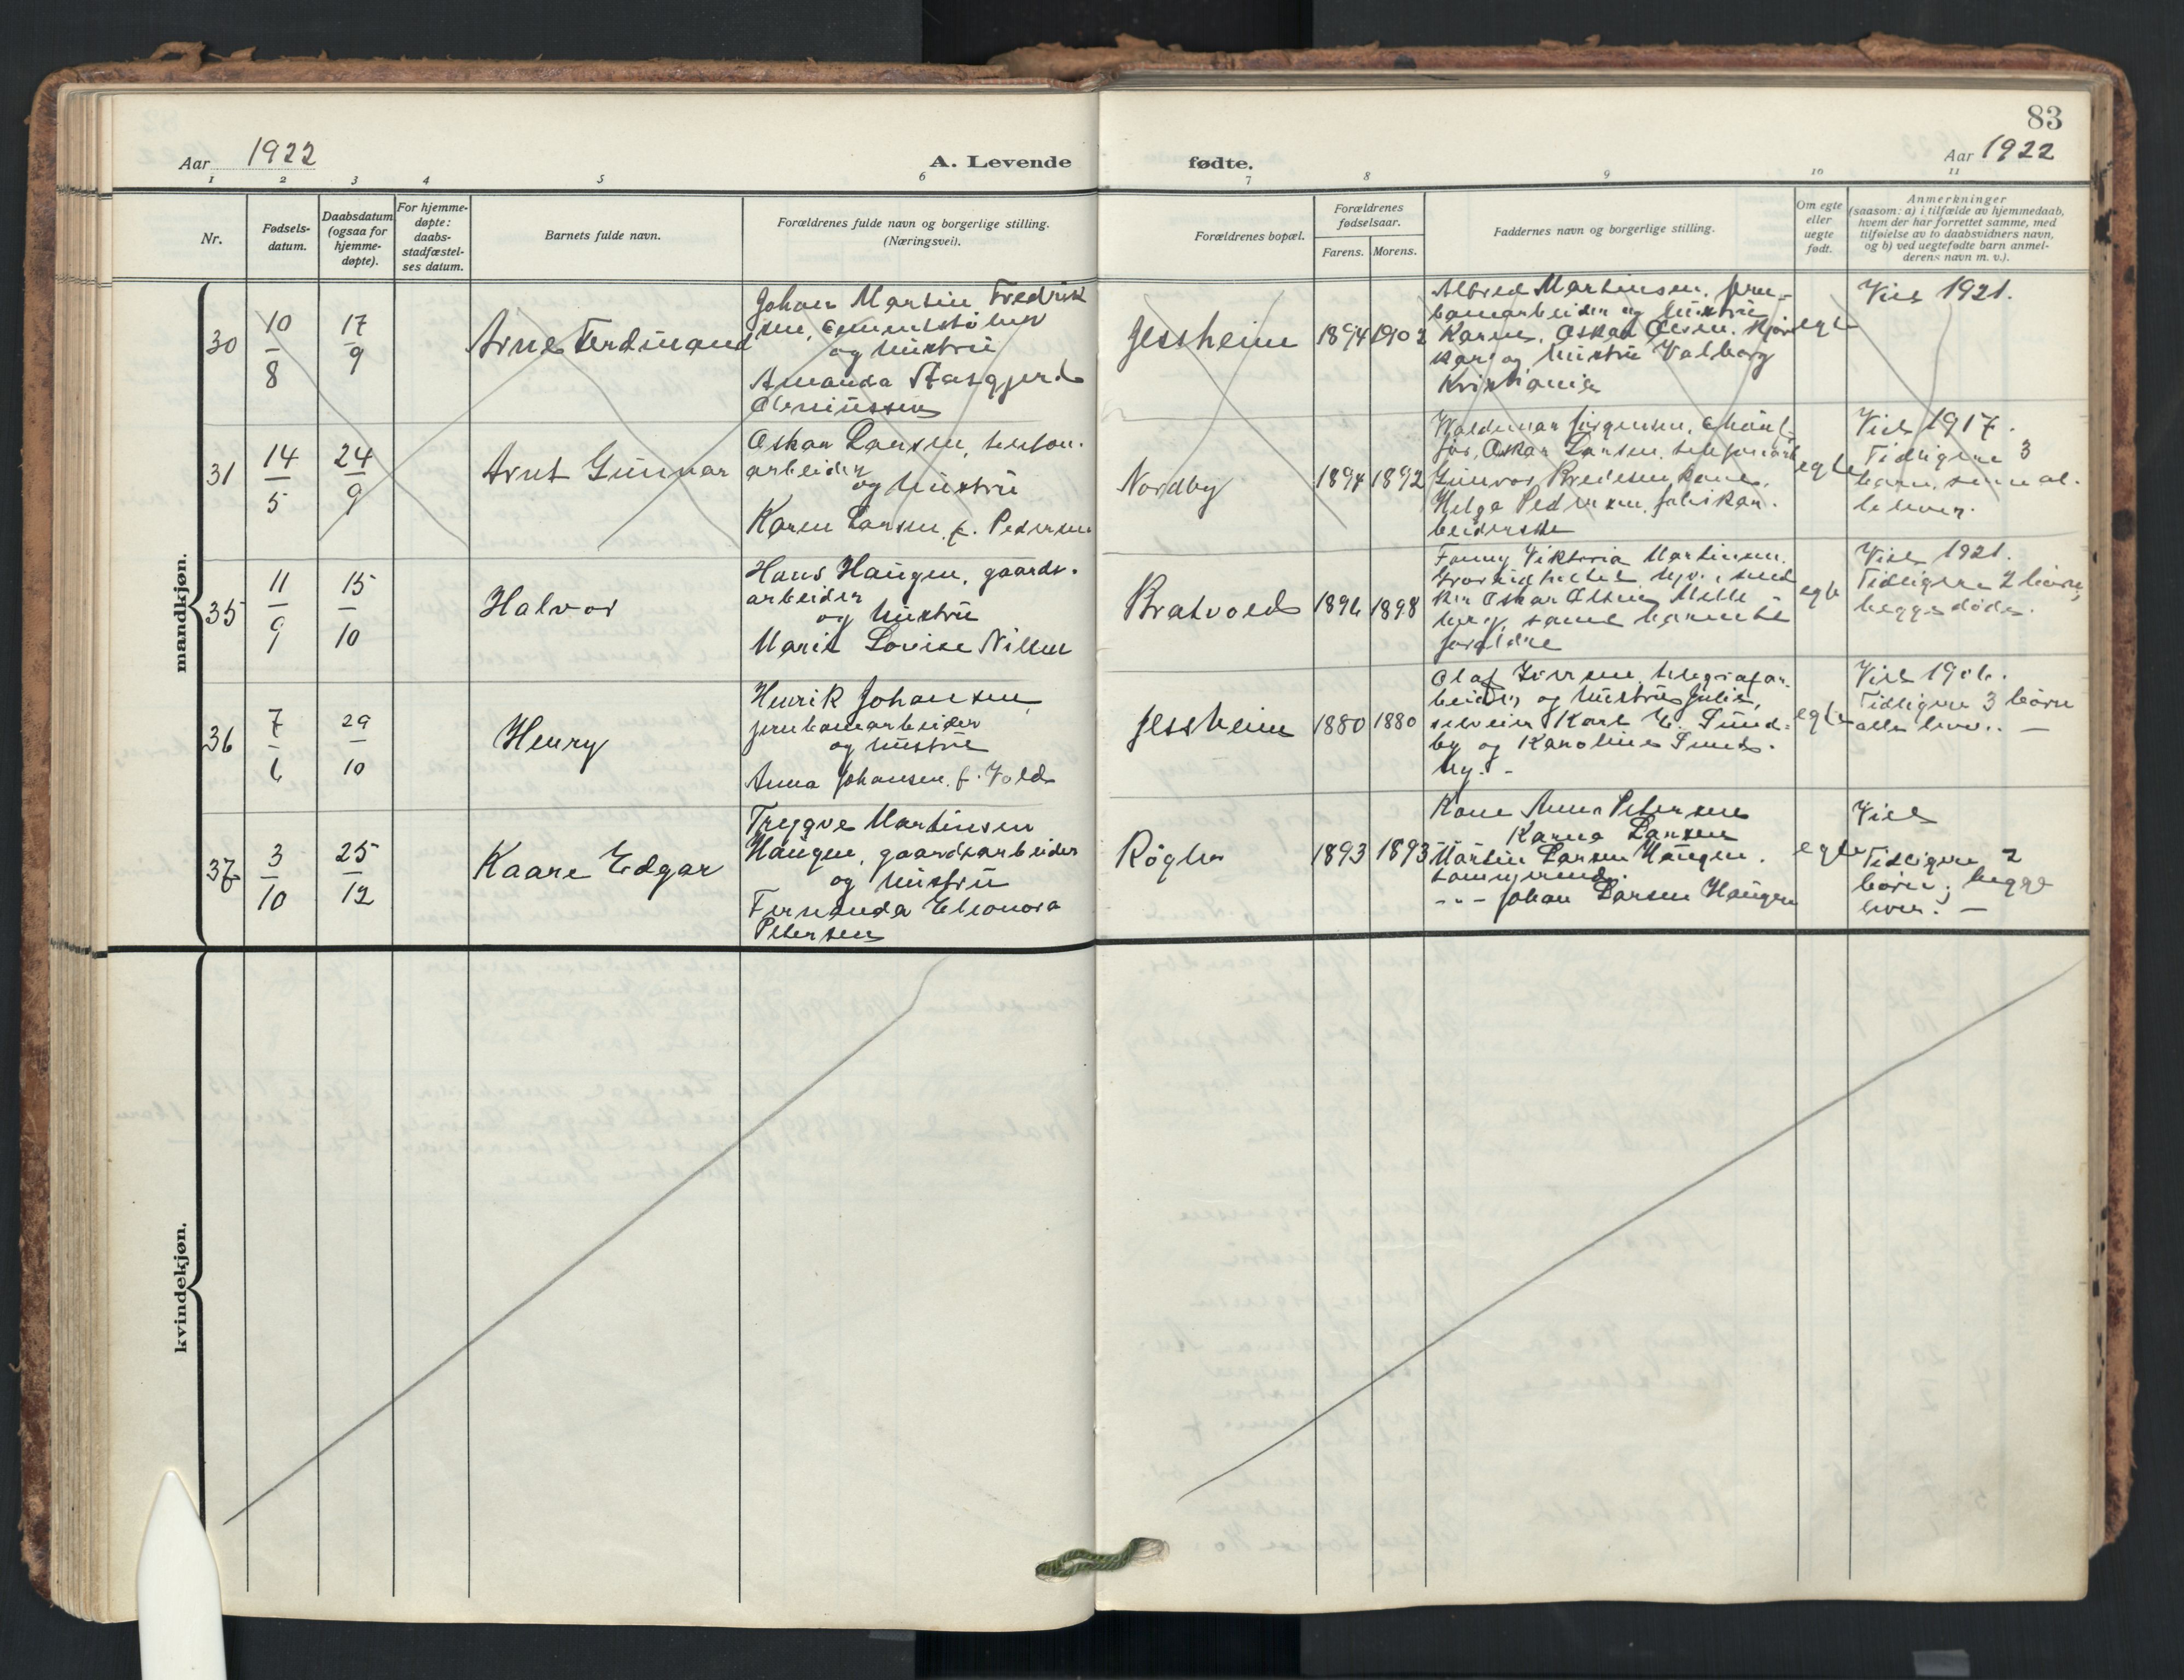 83
Aar 1922
A. Levende
fødte.
Aar 1922
1 2 3 4 5 6 7 8 9 10 11
Nr.
Fødsels-
datum.
Daabsdatum
(ogsaa for
hjemme-
døpte).
For hjemme-
døpte:
daabs-
stadfæstel-
ses datum.
Barnets fulde navn.
Forældrenes fulde navn og borgerlige stilling.
(Næringsvei).
Forældrenes bopæl.
Forældrenes
fødselsaar.
Farens. Morens.
Faddernes navn og borgerlige stilling.
Om egte
eller
uegte
født.
Anmerkninger
(saasom: a) i tilfælde av hjemmedaab,
hvem der har forrettet samme, med
tilføielse av to daabsvidners navn,
og b) ved uegtefødte barn anmel-
derens navn m. v.).
mandkjøn.
30
10
8
17
9
Arne Ferdinand
Johan Martin Fredrik
sen,
og hustru
Amanda
Jessheim
1894 1902
Alfred Martinsen, jern-
banearbeider og hustru
Karen, Oskar Olsen,
og hustru Valborg
Kristiania
egte
Viet 1921.
31
14
5
24
9
Arnt Gunnar
Oskar Larsen, telefon.
arbeider
og hustru
Karen Larsen f. Pedersen
Nordby
1894 1892
Waldemar Jørgensen, chauf-
før, Oskar Larsen, telefonarb
Gunvor Bredesen,
Helga Pedersen, fabrikar.
beiderske
egte
Viet 1917.
Tidligere 3
barn, som al-
le lever.
35
11
9
15
10
Halvor
Hans Haugen, gaards.
arbeider
og hustru
Marie Lovise Nilsen
Bratvold
1896 1898
Fanny Viktoria Martinsen.
Oskar Olsen
samt barnets
forældre
egte
Viet 1921.
Tidligere 2 børn,
begge døde.
36
7
6
29
10
Henry
Henrik Johansen,
jernbanearbeider
og hustru
Anna Johansen, f. Vold
Jessheim
1880 1880
Olaf Iversen, telegrafar-
beider og hustru Julie,
Karl E. Sund-
by og Karoline Sund-
by. -
egte
Viet
Tidligere 3 børn
alle lever. —
37
3
10
25
12
Kaare Edgar
Trygve Martinsen
Haugen, gaardsarbeider
og hustru
Fernanda Eleonora
Petersen
Røgler
1893 1893
Kone Anna Petersen
Karna Larsen
Martin Larsen Haugen.
- - - Johan Larsen Haugen
egte
Viet
Tidligere 2
børn; begge
lever. —
kvindekjøn.